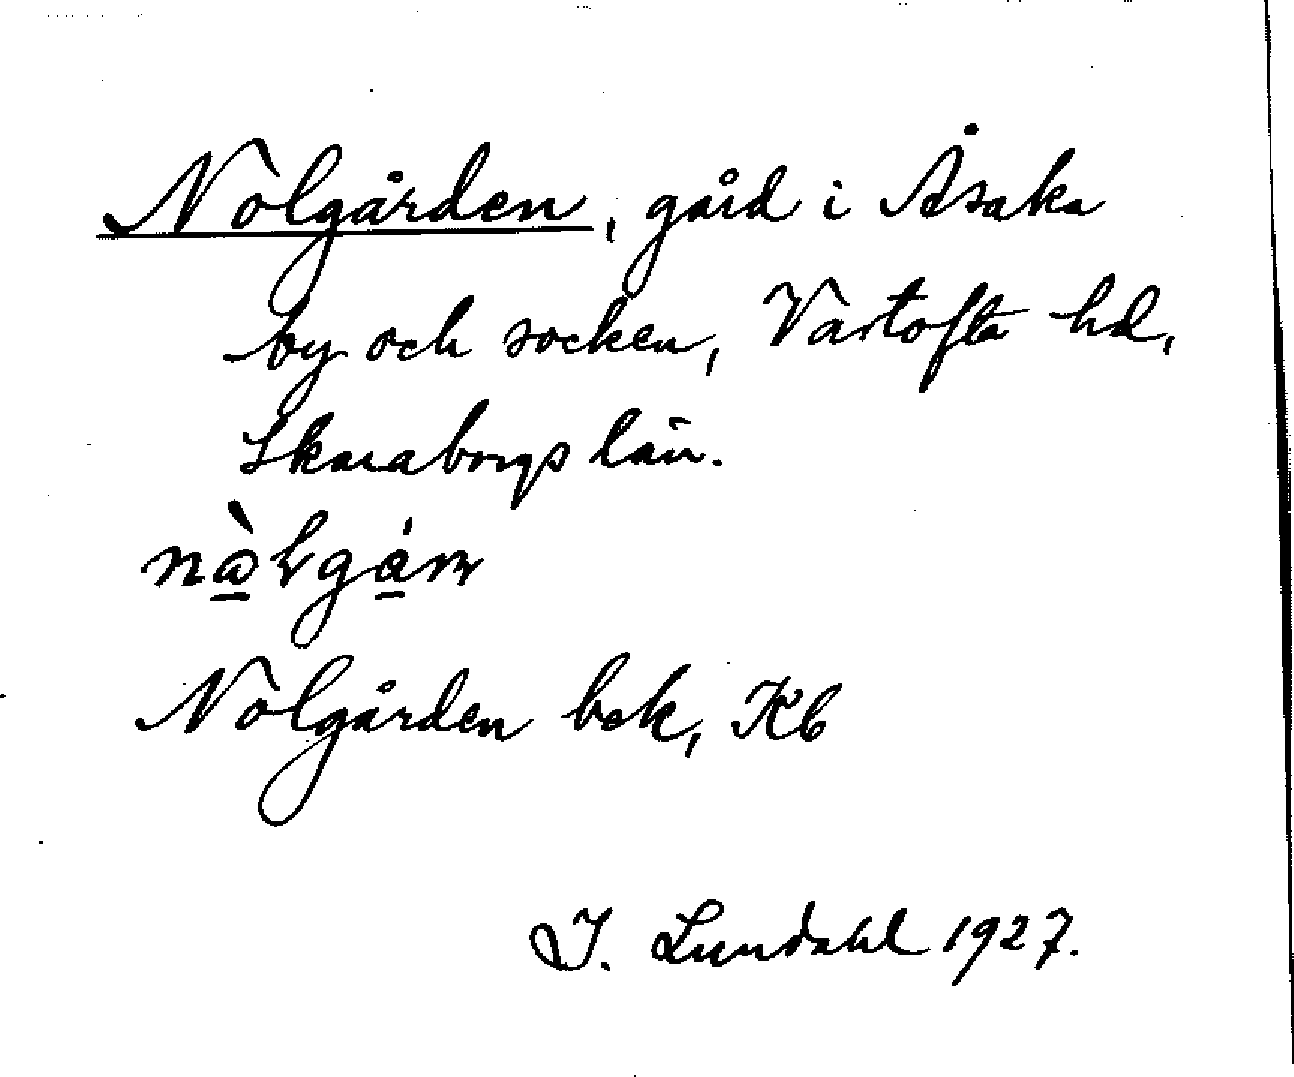 Nolgården, gård i Åsaka
by och socken, Vartofta hd,
Skaraborgs län.
Nolgården bek, Kb
I. Lundahl 1927.